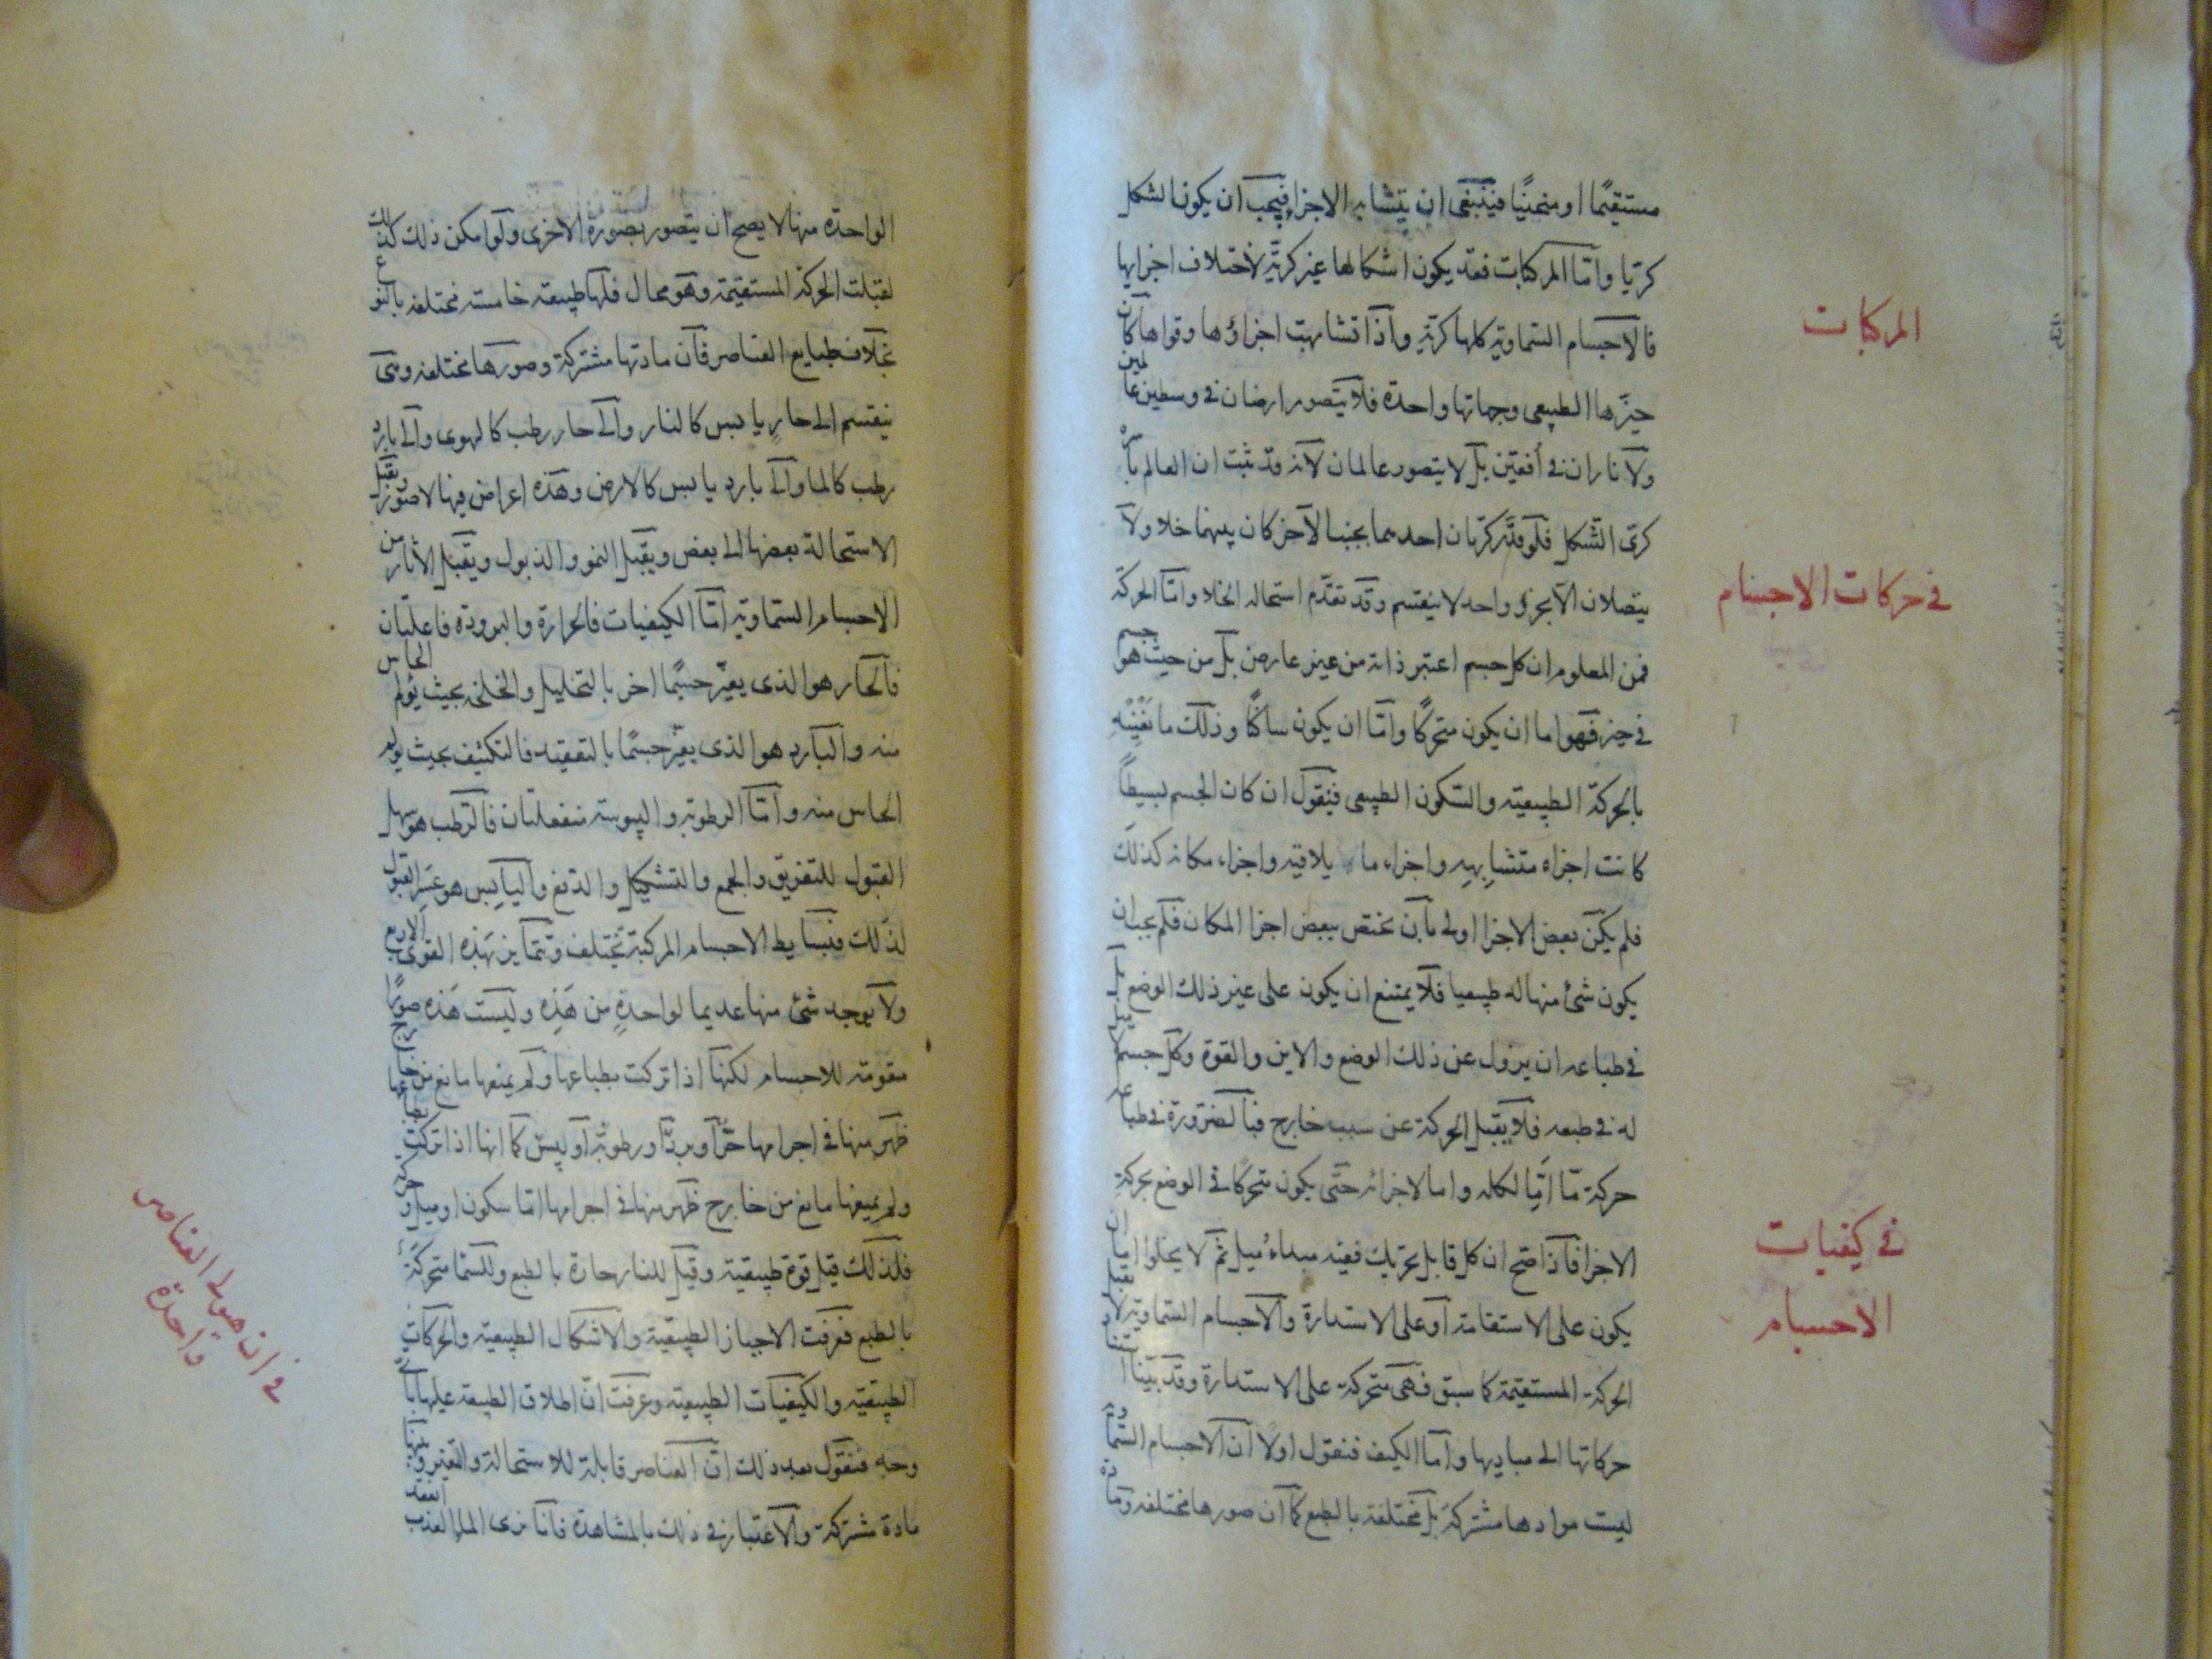 مستقيمًا او منحنيًا فينبغى ان يتشابه الاجزاء فيجب ان يكون الشكل
كريا وامّا المركبات فقد يكون اشكالها غير كرية لاختلاف اجزايها
فالاجسام السماوية كلها كرية واذا تشابهت اجزاؤها وقواها كان
حيزها الطبيعى وجهاتها واحدة فلا يتصور ارضان فى وسطين عالمين
ولا ناران فى أفقين بل لا يتصور عالمان لانه قد ثبت ان العالم باسره
كرى الشكل فلو قدر كريان احدهما بجنب الآخر كان بينهما خلا ولا
يتصلان الا بجزؤ واحد لا ينقسم وقد تقدّم استحالة الخلا وامّا الحركة
فمن المعلوم ان كل جسم اعتبر ذاته من غير عارض بل من حيث هو جسم
فى حيز فهو اما ان يكون متحركًا وامّا ان يكون ساكنًا وذلك ما نعنيه
بالحركة الطبيعية والسكون الطبيعى فنقول ان كان الجسم بسيطاً
كانت اجزاه متشابهه واجزاء ما يلاقيه واجزاء مكانه كذلك
فلم يكن بعض الاجزا اولى بأن يختص ببعض اجزا المكان فلم يجب ان
يكون شئ منها له طبيعيا فلا يمتنع ان يكون على غير ذلك الوضع بل
فى طباعه ان يزول عن ذلك الوضع والاين والقوة وكل جسم لا ميل
له فى طبعه فلا يقبل الحركة عن سبب خارج فبالضرورة فى طباعه
حركة مّا امّا لكله واما لاجزائه حتى يكون متحركًا فى الوضع بحركة
الاجزا فاذا صح ان كل قابل تحريك ففيه مبداء ميل ثم لا يخلوا اما ان
يكون على الاستقامة أو على الاستدارة والاجسام السماوية لا يقبل
الحركة المستقيمة كما سبق فهى متحركة على الاستدارة وقد بينا استناد
حركاتها الى مباديها وامّا الكيف فنقول اولًا ان الاجسام السماوية
ليست موادها مشتركة بل مختلفة بالطبع كما ان صورها مختلفة ومادة
المركبات
فى حركات الاجسام
فى كيفيات
الاجسام
الواحدة منها لا يصح ان يتصور بصورة الاخرى ولو امكن ذلك كذلك
لقبلت الحركة المستقيمة وهو محال فلها طبيعة خامسة مختلفة بالنوع
بخلاف طبايع العناصر فان مادتها مشتركة وصورها مختلفة وهى
ينقسم الى حار يابس كالنار والى حار رطب كالهوى والى بارد
رطب كالما والى بارد يابس كالارض وهذه اعراض فيها لا صور ويقبل
الاستحالة بعضها الى بعض ويقبل النمو والذبول ويقبل الآثار من
الاجسام السماوية امّا الكيفيات فالحرارة والبرودة فاعليتان
فالحار هو الذى يغيّر جسمًا اخر بالتحليل والخلخلة بحيث يؤلم الحاس
منه والبارد هو الذى يغيّر جسمًا بالتعقيد فالتكثيف بحيث يولم
الحاس منه وامّا الرطوبة واليبوسة منفعلتان فالرطب هو سهل
القبول للتفريق والجمع والتشكيل والدفع واليابس هو عسر القبول
لذلك فبسايط الاجسام المركبة تختلف وتتمايز بهذه القوى الاربع
ولا يوجد شئ منها عديما لواحدة من هذه وليست هذه صورًا
مقومة للاجسام لكنها اذا تركت بطباعها ولم يمنعها مانع من خارج
ظهر منها فى اجرامها حرًّا وبردًّا ورطوبة او يبس كما انها اذا تركت بطباعها
ولم يمنعها مانع من خارج ظهر منها فى اجرامها امّا سكون او ميل وحركة
فلذلك قيل قوة طبيعية وقيل للنار حارة بالطبع وللسما متحركة
بالطبع فعرفت الاحياز الطبيعية والاشكال الطبيعية والحركات
الطبيعية والكيفيات الطبيعية وعرفت ان اطلاق الطبيعة عليها باى
وجه فنقول بعد ذلك ان العناصر قابلة للاستحالة والتغير وبينها
مادة مشتركة والاعتبار فى ذلك بالمشاهدة فانا نرى الماء العذب انعقد
فى ان هيولى العناصر
واحدة